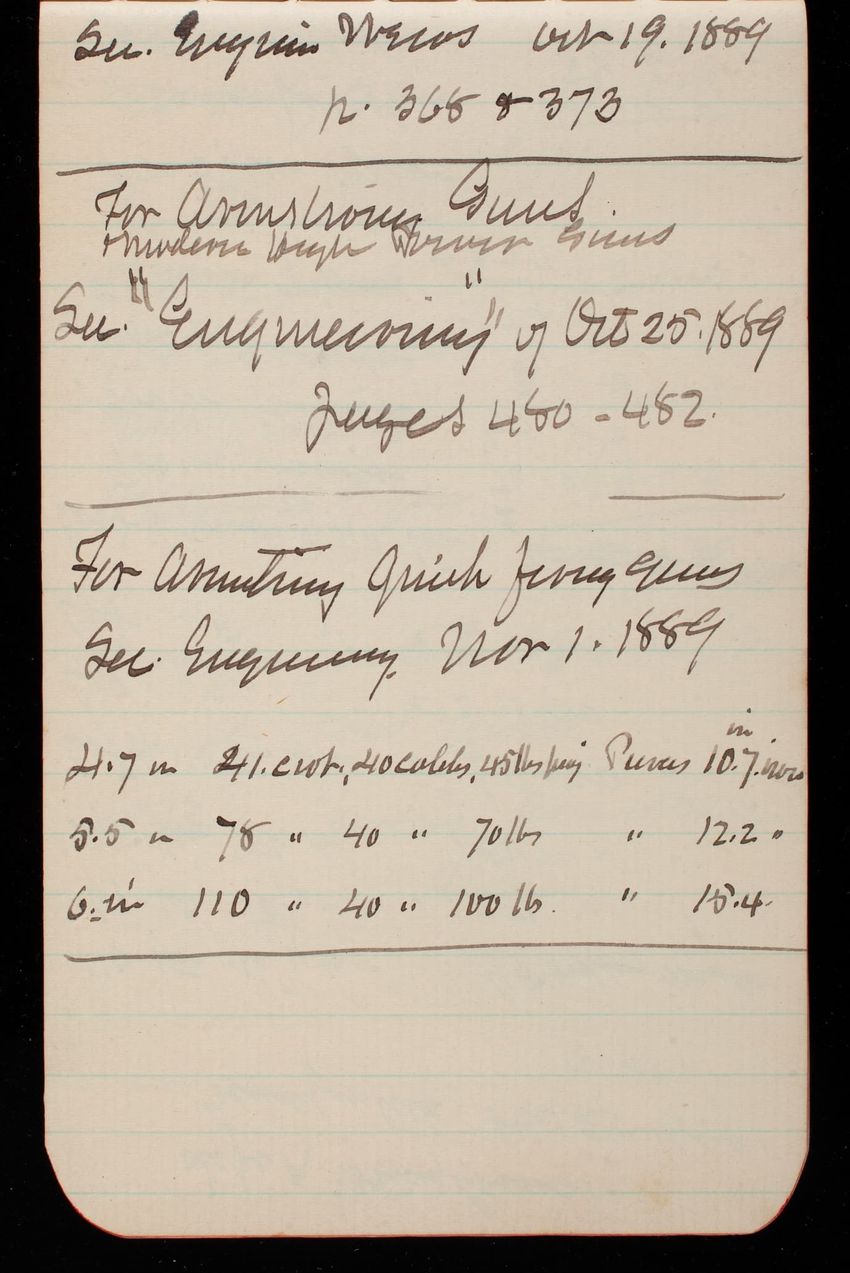 See. Engrin News Oct 19. 1889
p. 368 & 373
For Armstrong Guns
& modern high Power Guns
See. "Engineering" of Oct 25. 1889
Pages 480 - 482.
For Armstrong Quick firing guns
See. Engineering. Nov 1. 1889
in
4.7 in 41. cwt., 40 calibs, 45 lbs proj Pierces 10.7. iron
5.5 in 78 " 40 " 70 lbs " 12.2 "
6. in 110 " 40 " 100 lb. " 15.4.